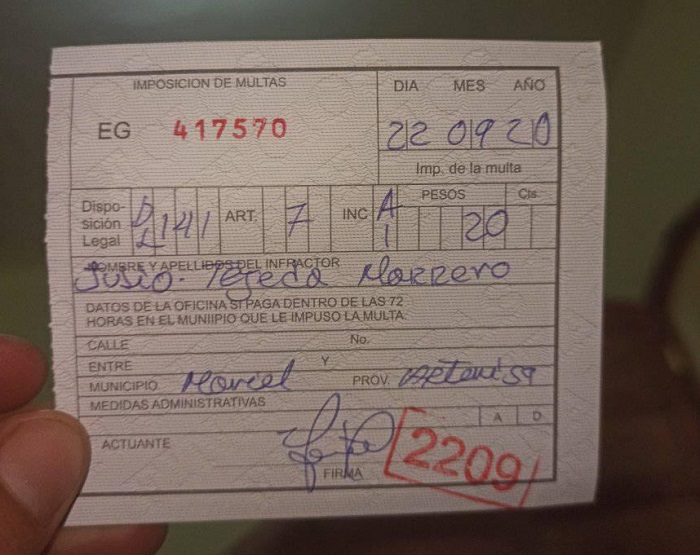 IMPOSICION DE MULTAS DIA MES AÑO
EG 417570 22 09 20
Imp. de la multa
Dispo- DL 141 ART. 7 INC A PESOS Cts
sición 1 20
Legal
NOMBRE Y APELLIDOS DEL INFRACTOR
Tejeda Marrero
DATOS DE LA OFICINA SI PAGA DENTRO DE LAS 72
HORAS EN EL MUNIIPIO QUE LE IMPUSO LA MULTA.
CALLE No.
ENTRE Y
MUNICIPIO Mariel PROV. Artemisa
MEDIDAS ADMINISTRATIVAS
A D
ACTUANTE 2209
FIRMA